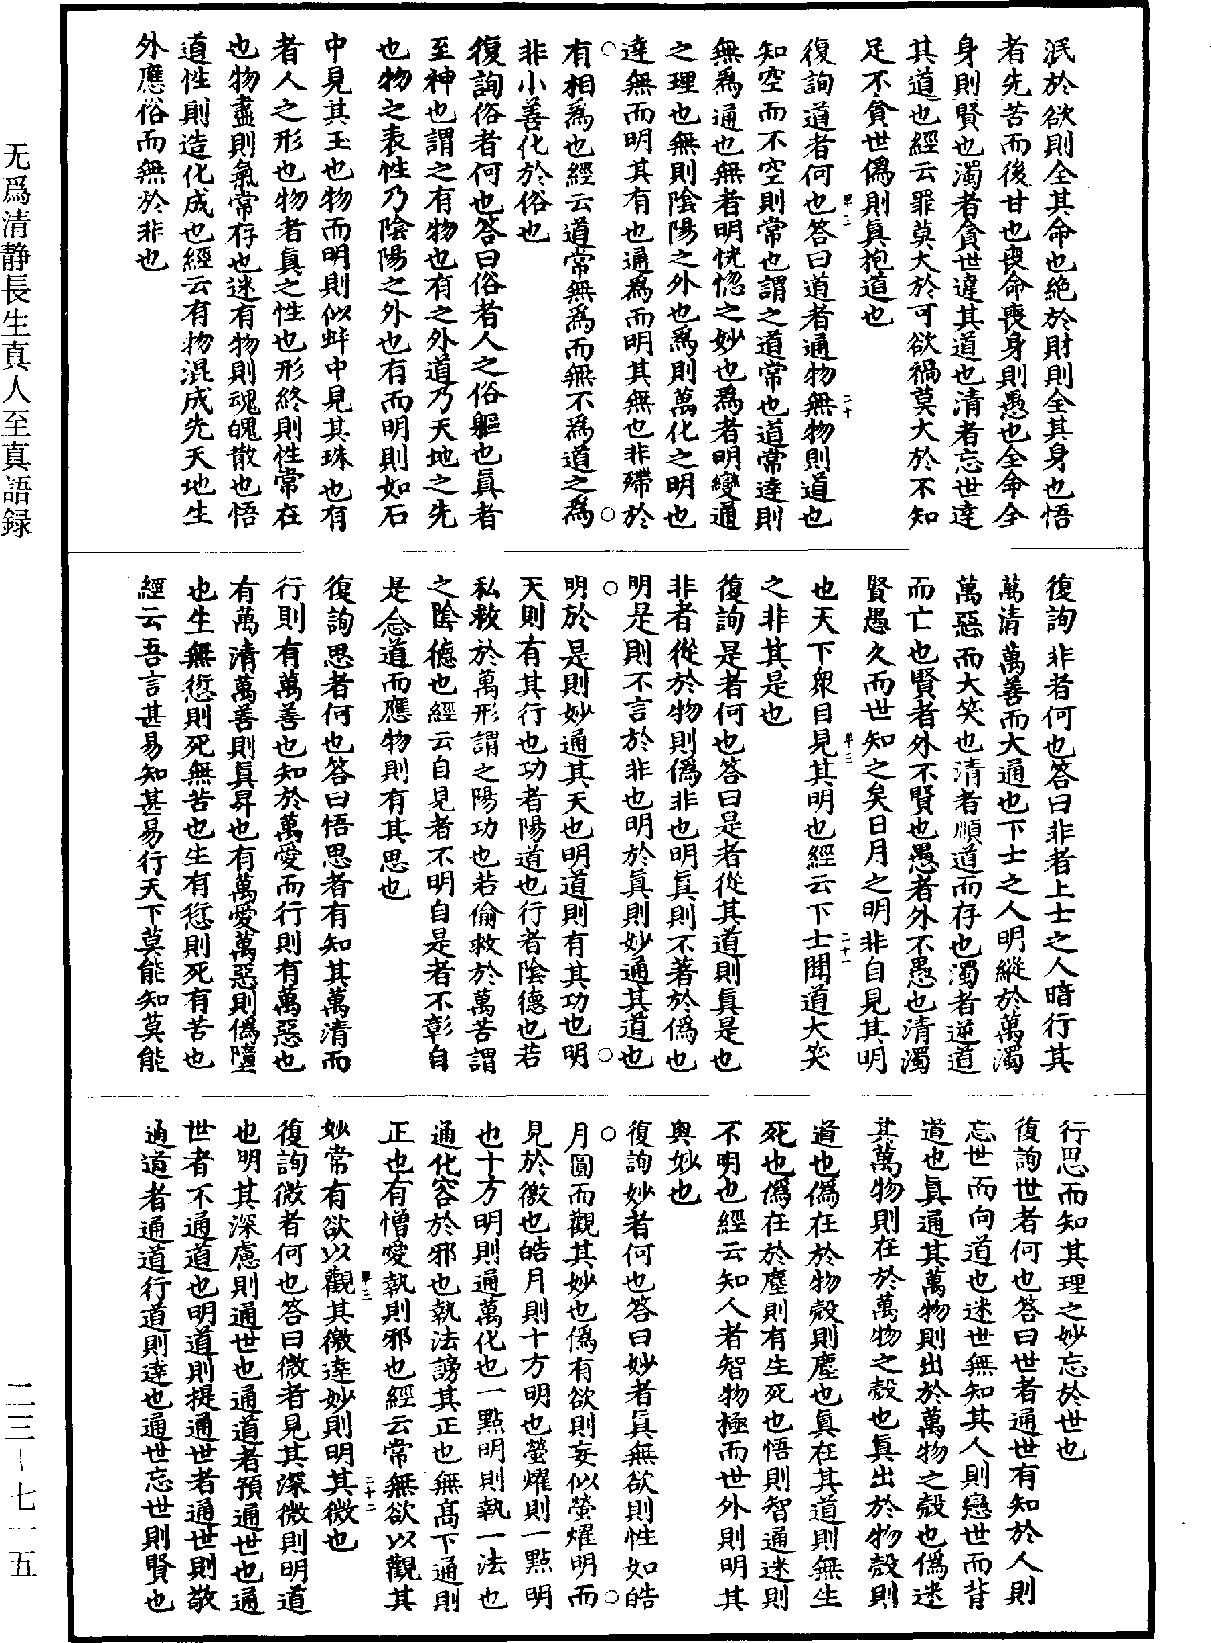 泯於欲則全其命也絶於財則全其身也悟
者先苦而後甘也喪命喪身則愚也全命全
身則賢也濁者貪世違其道也清者忘世達
其道也經云罪莫大於可欲禍莫大於不知
足不貪世僞則真抱道也
復詢道者何也答曰道者通物無物則道也
知空而不空則常也謂之道常也道常達則
無爲通也無者明恍惚之妙也爲者明變通
之理也無則陰陽之外也爲則萬化之明也
達無而明其有也通爲而明其無也非殢於
有相爲也經云道常無爲而無不爲道之爲
非小善化於俗也
復詢俗者何也答曰俗者人之俗軀也眞者
至神也謂之有物也有之外道乃天地之先
也物之表性乃陰陽之外也有而明則如石
中見其玉也物而明則似蚌中見其珠也有
者人之形也物者真之性也形終則性常在
也物盡則氣常存也迷有物則魂魄散也悟
道性則造化成也經云有物混成先天地生
外應俗而無於非也
復詢非者何也答曰非者上士之人暗行其
萬清萬善而大通也下士之人明縱於萬濁
萬惡而大笑也清者順道而存也濁者逆道
而亡也賢者外不賢也愚者外不愚也清濁
賢愚久而世知之矣日月之明非自見其明
也天下衆目見其明也經云下士聞道大笑
之非其是也
復詢是者何也答曰是者從其道則真是也
非者從於物則僞非也明真則不著於僞也
明是則不言於非也明於眞則妙通其道也
明於是則妙通其天也明道則有其功也明
天則有其行也功者陽道也行者陰德也若
私救於萬形謂之陽功也若偷救於萬苦謂
之陰德也經云自見者不明自是者不彰自
是念道而應物則有其思也
復詢思者何也答曰悟思者有知其萬清而
行則有萬善也知於萬愛而行則有萬惡也
有萬清萬善則眞昇也有萬愛萬惡則僞墮
也生無愆則死無苦也生有愆則死有苦也
經云吾言甚易知甚易行天下莫能知莫能
行思而知其理之妙忘於世也
復詢世者何也答曰世者通世有知於人則
忘世而向道也迷世無知其人則戀世而背
道也真通其萬物則出於萬物之殼也僞迷
其萬物則在於萬物之殼也真出於物殼則
道也僞在於物殼則塵也真在其道則無生
死也僞在於塵則有生死也悟則智通迷則
不明也經云知人者智物極而世外則明其
與妙也
復詢妙者何也答曰妙者眞無欲則性如皓
月圓而觀其妙也僞有欲則妄似螢燿明而
見於徼也皓月則十方明也螢燿則一點明
也十方明則通萬化也一點明則執一法也
通化容於邪也執法謗其正也無高下通則
正也有憎愛執則邪也經云常無欲以觀其
妙常有欲以觀其徼達妙則明其微也
復詢微者何也答曰微者見其深微則明道
也明其深慮則通世也通道者預通世也通
世者不通道也明道則提通世者通世則敬
通道者通道行道則達也通世忘世則賢也
无爲清静長生真人至真語録
二三－七一五